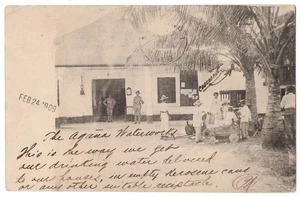 FEB 24 1909
The Agaña Waterworks
This is the way we get
our drinking water delivered
to our houses, in empty kerosene cans
or any other suitable receptacle.